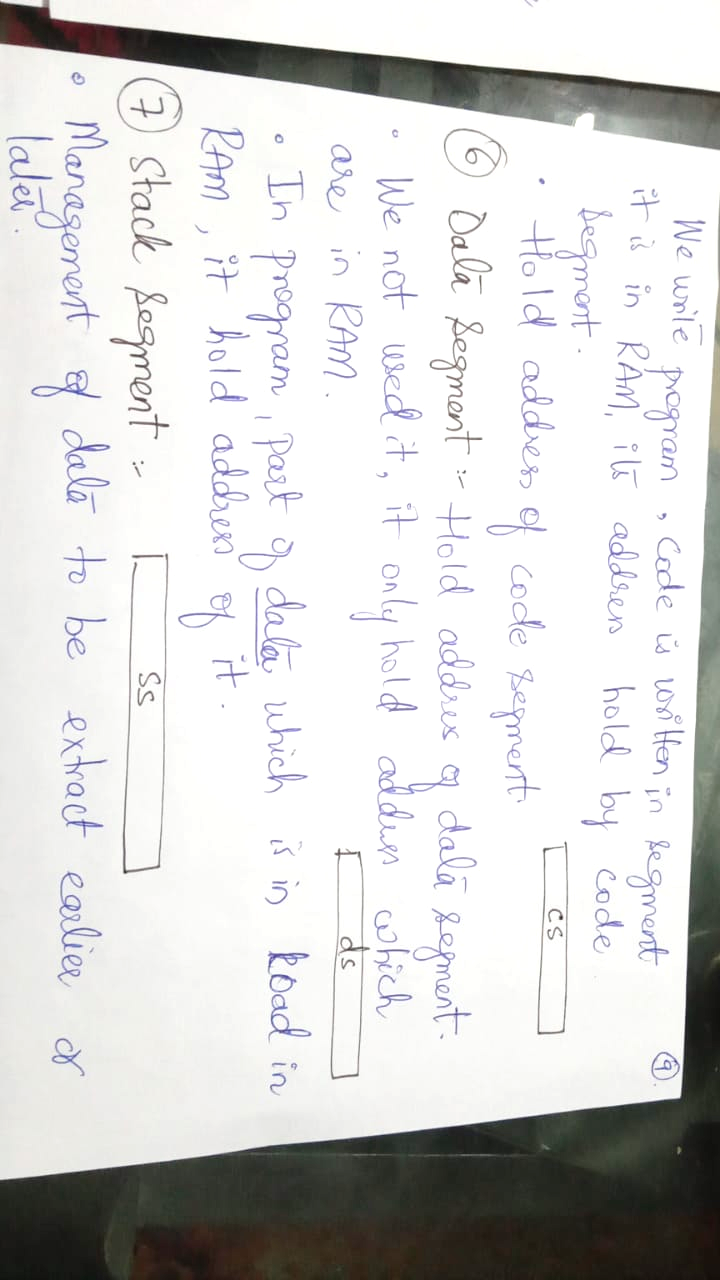 9.
We write program, Code is written in segment
it is in RAM, its address hold by code
segment.
• Hold address of code segment.
cs
6 Data segment :- Hold address of data segment.
• We not used it, it only hold address which
are in RAM.
ds
• In program, part of data which is in load in
RAM, it hold address of it.
7 Stack segment :- ss
• Management of data to be extract earlier or
later.